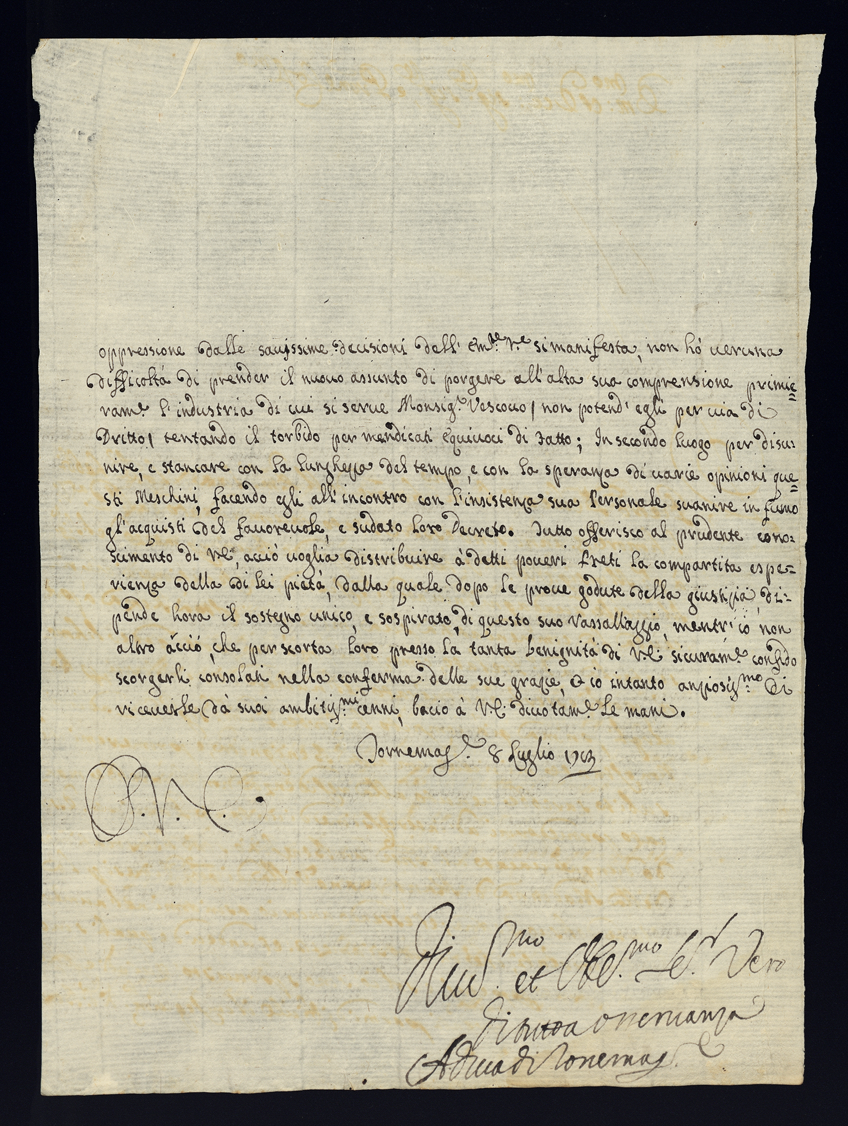 oppressione dalle sauissime decisioni dell' Em.ze V.e si manifesta, non hò ueruna
difficoltà di prender il nuouo assunto di porgere all'alta sua comprensione primie=
ram.e l'industria di cui si serue Monsig.r Vescouo, non potend' egli per uia di
Dritto, tentando il torbido per mendicati equiuoci di Fatto; In secondo luogo per disu=
nire, e stancare con la lunghezza del tempo, e con la speranza di uarie opinioni que=
sti Meschini, facendo egli all'incontro con l'insistenza sua Personale suanire in fumo
gl'acquisti del fauoreuole, e sudato loro Decreto. Tutto offerisco al prudente cono=
scimento di V.E., acciò uoglia distribuire à detti poueri Preti la compartita espe=
rienza della di lei pietà, dalla quale dopo le proue godute della giustizia, di=
pende hora il sostegno unico, e sospirato, di questo suo Vassallaggio, mentr'io non
altro acciò, che per scorta loro presso la tanta benignità di V.E. sicuram.e confido
scorgerli consolati nella conferma delle sue grazie, et io intanto anziosiss.mo di
riceuerle dà suoi ambitiss.mi cenni, bacio à V.E. diuotam.e le mani.
Torremag.e 8 Luglio 1703
S.V.E.
Diu.mo et Obb.mo Se.r Vero
di tutta osseruanza
di Torremag.e